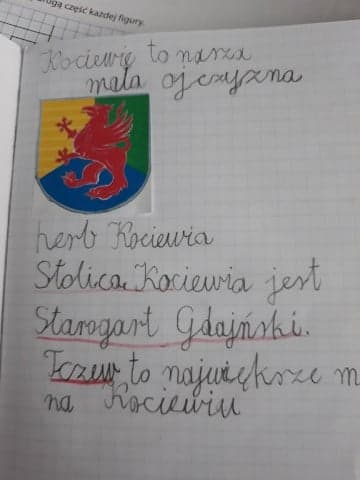 rugą część każdej figury.
Kociewie to nasza
mała ojczyzna
herb Kociewia
Stolicą Kociewia jest
Starogart Gdajński.
Tczew to największe m
na Kociewiu